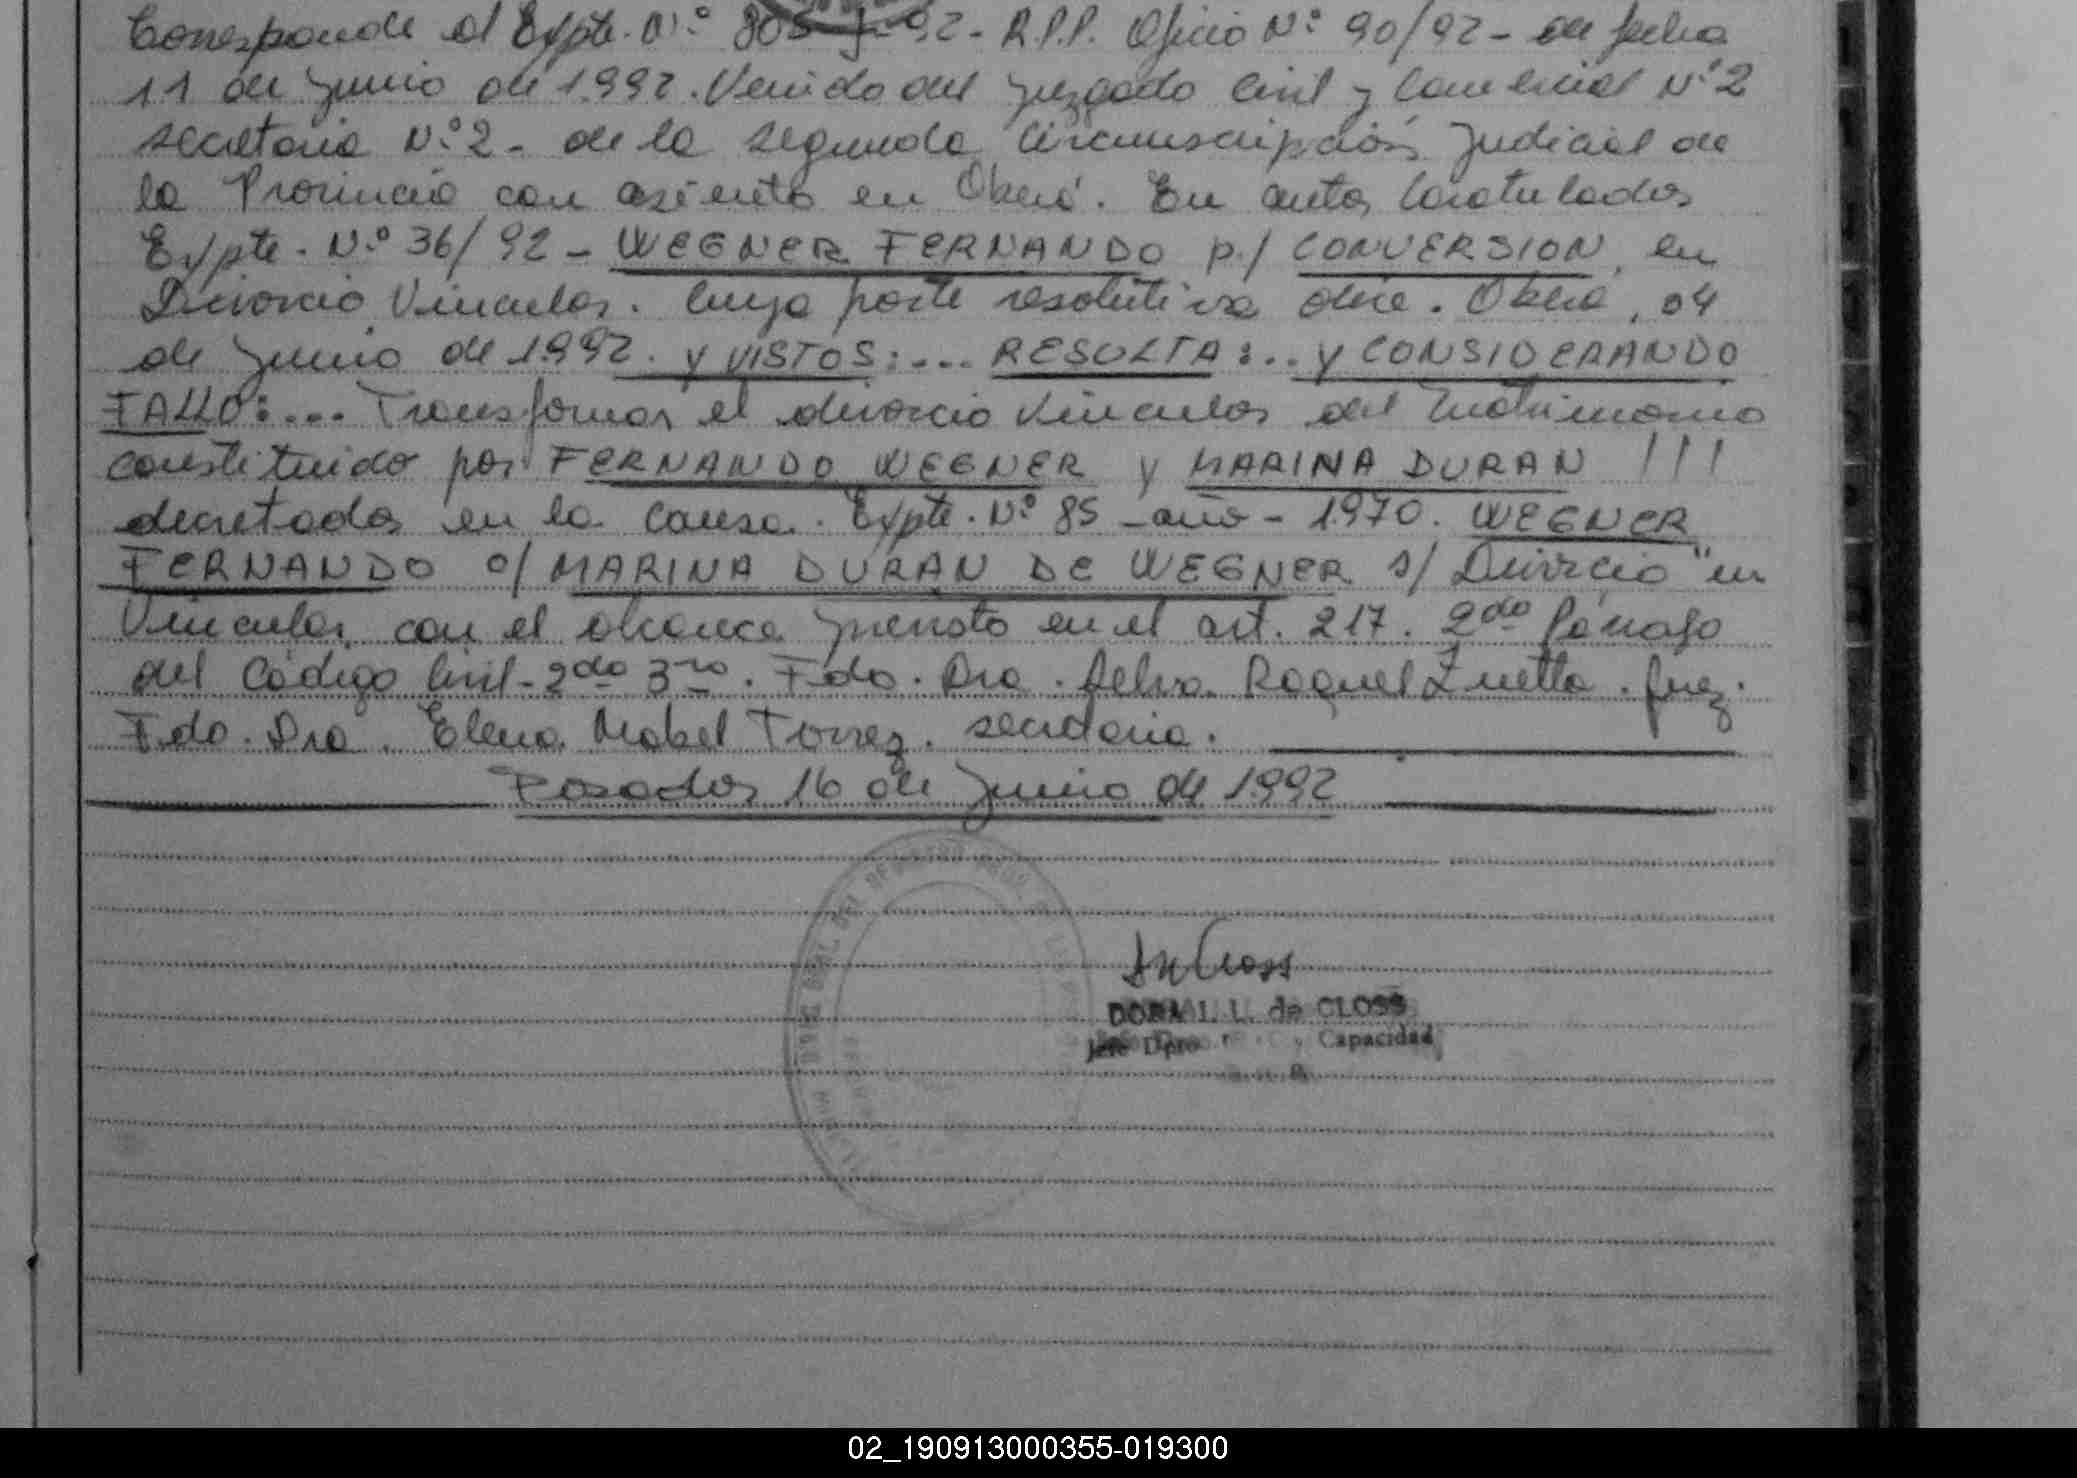 Corresponde al Expte. N.º 805-J-92- R.P.P. Oficio N.º 90/92- de fecha
11 de Junio de 1.992. Venido del Juzgado Civil y Comercial N.º 2
secretaria N.º 2- de la segunda Circunscripción Judicial de
la Provincia con asiento en Oberá. En autos Caratulados
Expte. N.º 36/92- WEGNER FERNANDO p./ CONVERSION, en
Divorcio Vincular. Cuya parte resolutiva dice. Oberá, 04
de Junio de 1.992. y VISTOS:... RESULTA:.. y CONSIDERANDO
FALLO:... Transformar el divorcio Vincular del Matrimonio
constituido por FERNANDO WEGNER y MARINA DURAN !!!
decretado en la causa. Expte. N.º 85 -año- 1.970. WEGNER
FERNANDO c/ MARINA DURAN DE WEGNER s/ Divorcio" en
Vincular, con el alcance previsto en el art. 217. 2do Párrafo
del Código Civil- 2do 3ro. Fdo. Dra. Selva Raquel Zuetta. Juez.
Fdo. Dra. Elena Mabel Torrez. secretaria.
Posadas 16 de Junio de 1.992
DORA I. L. de CLOSS
Jefe Dpto Capacidad
02_190913000355-019300